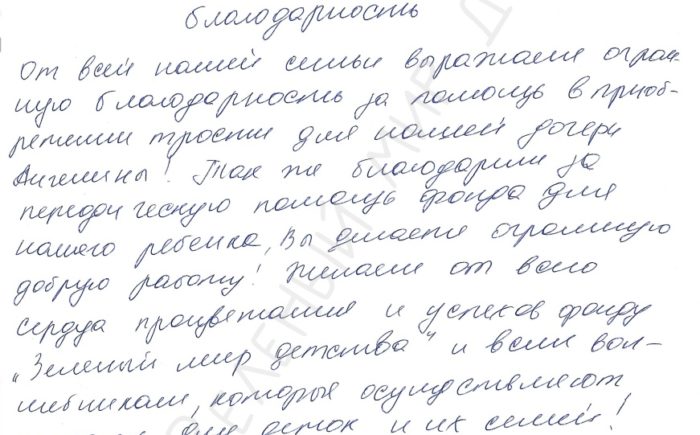 благодарность
От всей нашей семьи выражаем огром-
ную благодарность за помощь в приоб-
ретении трости для нашей дочери
Ангелины! Так же благодарим за
периодическую помощь фонда для
нашего ребенка, Вы делаете огромную
добрую работу! Желаем от всего
сердца процветания и успехов фонду
"Зеленый мир детства" и всем вол-
шебникам, которые осуществляют
для деток и их семей!